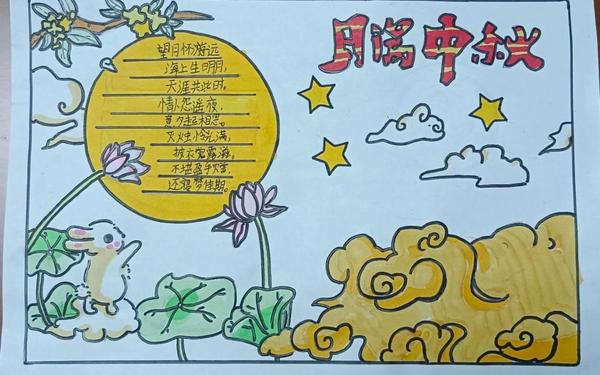 月满中秋
望月怀游远
海上生明月,
天涯共此时。
情人怨遥夜,
竟夕起相思。
灭烛怜光满,
披衣觉露滋。
不堪盈手赠,
还寝梦佳期。